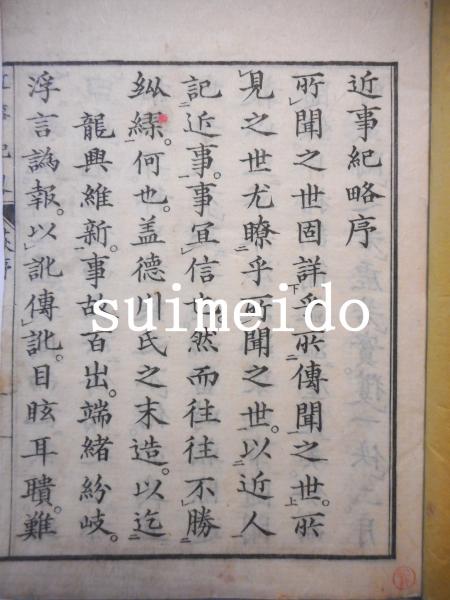 近事紀略序
所聞之世固詳乎所傳聞之世。所
見之世尤瞭乎所聞之世。以近人
記近事。事宜信也。然而往往不勝
紕繆。何也。盖德川氏之末造。以迄
龍興維新。事故百出。端緒紛岐。
浮言譌報。以訛傳訛。目眩耳聵。難
suimeido